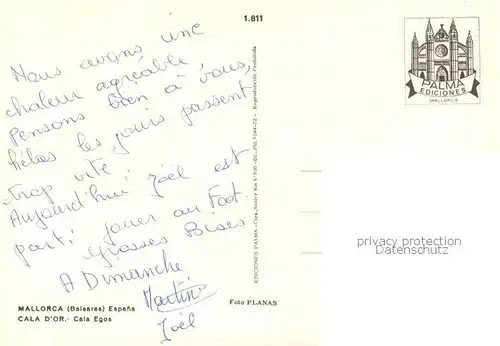 1.811
Nous avons une
chaleur agréable
Pensons bien à vous,
hélas les jours passent
trop vite,
Aujourd'hui Joël est
parti jouer au Foot
grosses Bises
A Dimanche
Martine
Joël
MALLORCA (Baleares) España
CALA D'OR.- Cala Egos
Foto PLANAS
EDICIONES PALMA
Reproducción Prohibida
PALMA
EDICIONES
MALLORCA
privacy protection
Datenschutz